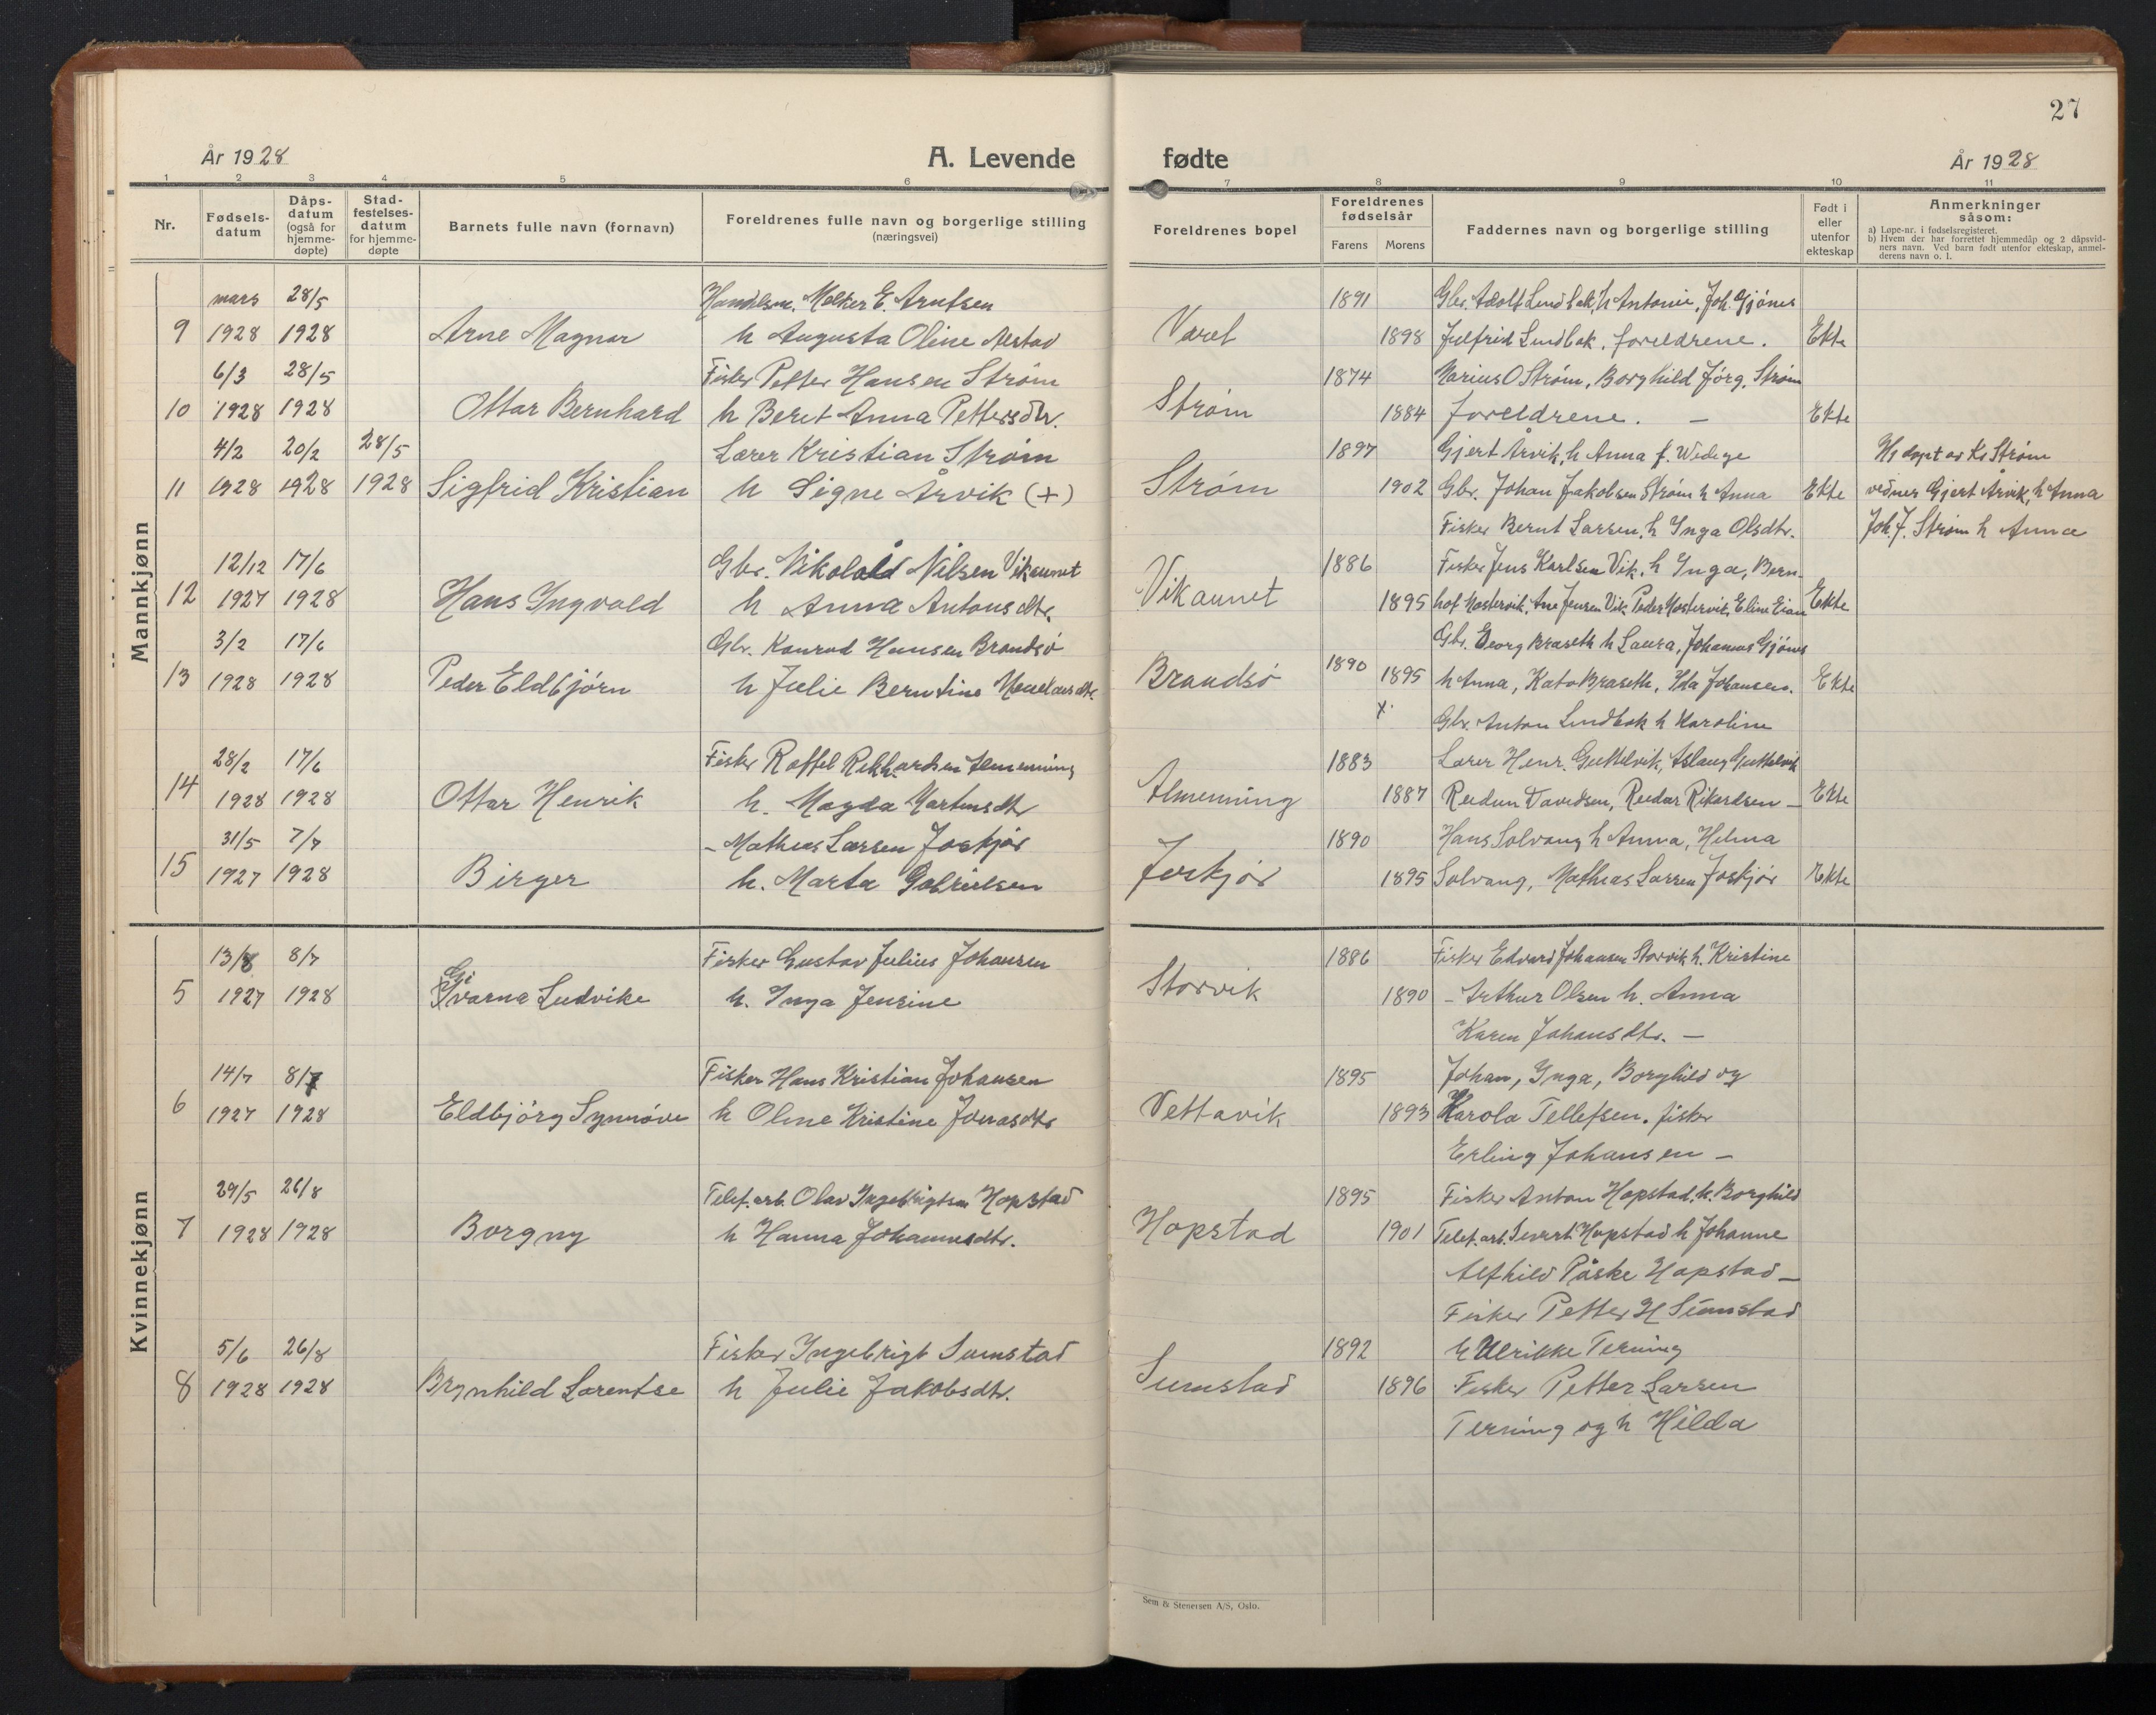 27
År 1928 A. Levende fødte År 1928
1 2 3 4 5 6 7 8 9 10 11
Nr.
Fødsels-
datum
Dåps-
datum
(også for
hjemme-
døpte)
Stad-
festelses-
datum
for hjemme-
døpte
Barnets fulle navn (fornavn)
Foreldrenes fulle navn og borgerlige stilling
(næringsvei)
Foreldrenes bopel
Foreldrenes
fødselsår
Farens Morens
Faddernes navn og borgerlige stilling
Født i
eller
utenfor
ekteskap
Anmerkninger
såsom:
a) Løpe-nr. i fødselsregisteret.
b) Hvem der har forrettet hjemmedåp og 2 dåpsvid-
ners navn. Ved barn født utenfor ekteskap, anmel-
derens navn o. l.
Mannkjønn
mars 28/5 Handelsm. Melker E. Arntsen 1891 Gbr. Adolf Lindbak, h Antonie, Joh. Gjönes
9 1928 1928 Arne Magnar h Augusta Oline Nestad 1898 Julfrid Lindbak, foreldrene. Ekte
6/3 28/5 Fisker Petter Hansen Strøm 1874 Marius O Strøm, Borghild Jørg. Strøm
10 1928 1928 Ottar Bernhard h Beret Anna Pettersdtr. Strøm 1884 foreldrene. — Ekte
4/2 20/2 28/5 Lærer Kristian Strøm 1897 Gjert Årvik, h Anna f. Wedege Hj døpt av Kr Strøm
11 1928 1928 1928 Sigfrid Kristian h Signe Årvik (+) Strøm 1902 Gbr. Johan Jakobsen Strøm h Anna Ekte vidner Gjert Årvik, h Anna
Fisker Bernt Larsen, h Inga Olsdtr. Joh. J. Strøm h Anna
12/12 17/6 Gbr. Nilsen Vikaunet 1886 Fisker Jens Karlsen Vik, h Inga, Bern-
12 1927 1928 Hans Ingvald h Anna Antonsdtr. Vikaunet 1895 hof Mostervik, Ane Jensen Vik, Peder Mostervik, Eline Eian Ekte
3/2 17/6 Gbr. Konrad Hansen Brandsø Gbr. Georg Braseth h Laura, Johannes Gjönes
13 1928 1928 Peder Eldbjørn h Julie Berntine Brandsø 1890 1895 h Anna, Kato Braseth, Ida Johansen. Ekte
x Gbr. Anton Lindbak h Karoline
28/2 17/6 Fisker Roffel Rikhardsen Almenning 1883 Lærer Henr. Guttelvik, Aslaug Guttelvik
14 1928 1928 Ottar Henrik h. Magda Martinsdtr Almenning 1887 Reidun Davidsen, Reidar Rikardsen — Ekte
31/5 7/7 - Mathias Larsen Joskjør 1890 Hans Solvang h Anna, Helma
15 1927 1928 Birger h. Marta Gabrielsen Joskjør 1895 Solvang, Mathias Larsen Joskjør Ekte
Kvinnekjønn
13/8 8/7 Fisker Gustav Julius Johansen 1886 Fisker Edvard Johansen Storvik h. Kristine
5 1927 1928 Svarna Ludvike h. Inga Jensine Storvik 1890 - Arthur Olsen h. Anna
Karen Johansdtr. —
14/7 8/7 Fisker Hans Kristian Johansen 1895 Johan, Inga, Borghild og
6 1927 1928 Eldbjörg Synnöve h Oline Kristine Jonasdtr Vettavik 1893 Karola Tellefsen. fisker
Erling Johansen —
29/5 26/8 Telef.arb. Olav Ingebrigtsen Hopstad 1895 Fisker Anton Hopstad, h. Borghild
7 1928 1928 Borgny h Hanna Johannesdtr. Hopstad 1901 Telef.arb. Sivert Hopstad h Johanne
Alfhild Påske Hopstad —
Fisker Petter H Sumstad
5/6 26/8 Fisker Ingebrigt Sumstad 1892 h Ulrikke Terning
8 1928 1928 Brynhild Lorentse h Julie Jakobsdtr. Sumstad 1896 Fisker Petter Larsen
Terning og h Hilda
Sem & Stenersen A/S, Oslo.